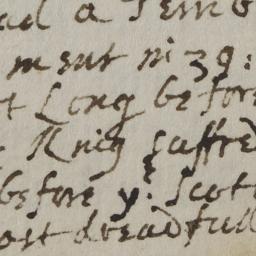 ad a Semb
ment in 39:
t Long before
King suffred
before y:e Scot
ost dreadfull